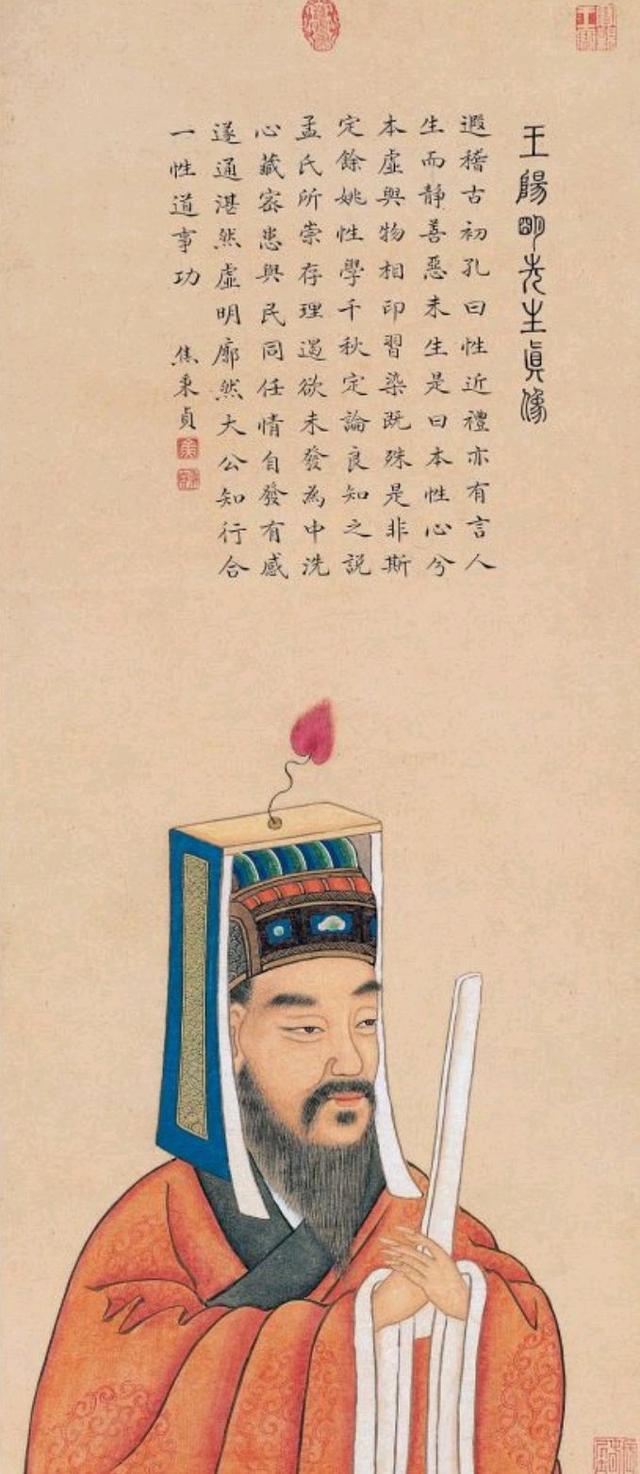 王陽明先生眞像
遐稽古初孔曰性近禮亦有言人
生而靜善惡未生是曰本性心兮
本虛與物相印習染既殊是非斯
定餘姚性學千秋定論良知之説
孟氏所崇存理遏欲未發為中洗
心藏密患與民同任情自發有感
遂通湛然虛明廓然大公知行合
一性道事功 焦秉貞